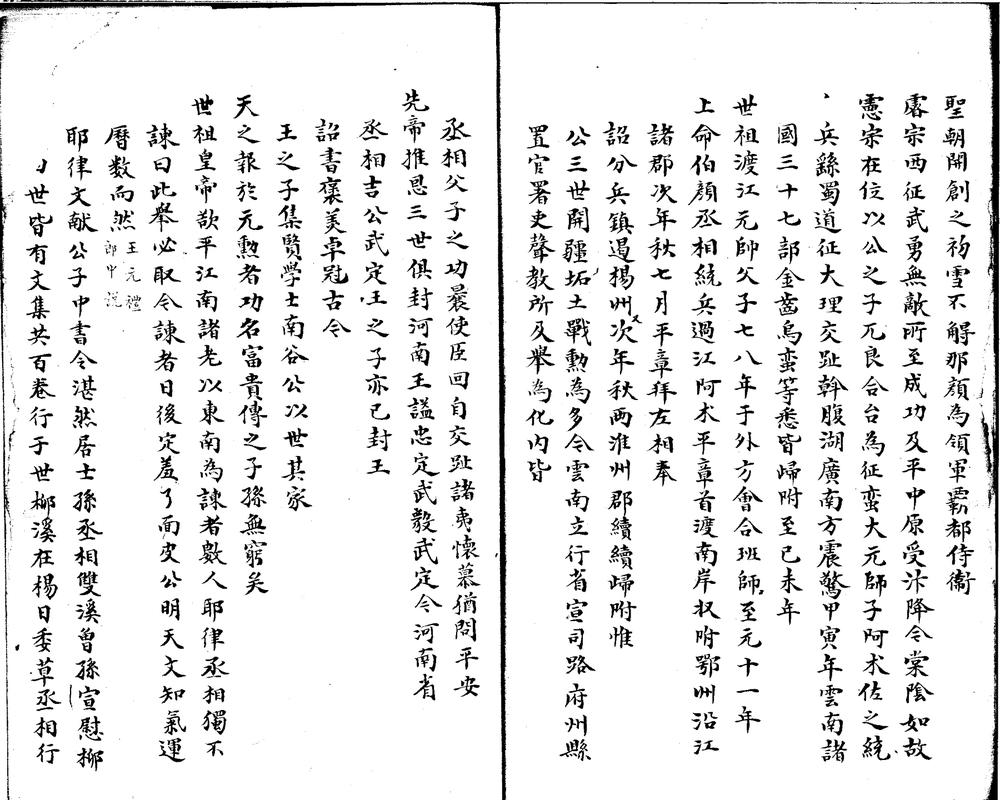 聖朝開創之初雪不䚷那顏為領軍霸都侍衞
睿宗西征武勇無敵所至成功及平中原受汴降今棠陰如故
憲宗在位以公之子兀良合台為征蛮大元師子阿术佐之統
兵繇蜀道征大理交趾幹腹湖廣南方震驚甲寅年雲南諸
國三十七部金齒烏蛮等悉皆歸附至已未年
世祖渡江元帥父子七八年于外方會合班師至元十一年
上命伯顏丞相統兵過江阿术平章首渡南岸収附鄂州沿江
諸郡次年秋七月平章拜左相奉
詔分兵鎮遏揚州次年秋两淮州郡續續歸附惟
公三世開疆拓土戰勲為多今雲南立行省宣司路府州縣
置官署吏聲教所及舉為化内皆
丞相父子之功曩使臣回自交趾諸夷懷慕猶問平安
先帝推恩三世俱封河南王謚忠定武毅武定今河南省
丞相吉公武定王之子亦已封王
詔書褒美卓冠古今
王之子集賢學士南谷公以世其家
天之報於元勲者功名富貴傳之子孫無窮矣
世祖皇帝欲平江南諸老以東南為諫者數人耶律丞相獨不
諫曰此舉必取今諫者日後定羞了面皮公明天文知氣運
曆数而然王元禮郎中說
耶律文献公子中書令湛然居士孫丞相雙溪曾孫宣慰柳
世皆有文集共百卷行于世柳溪在楊日委草丞相行